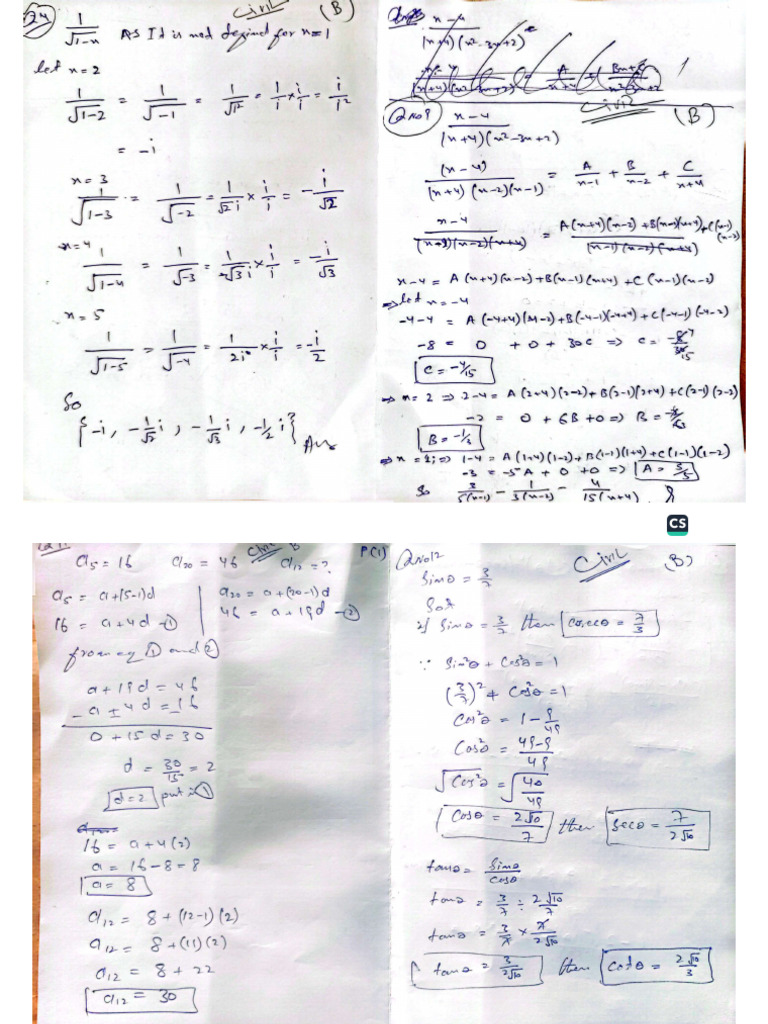 24 1/√(1-n) As It is not defined for n=1 Civil (B)
let n=2
1/√(1-2) = 1/√-1 = 1/√i² = 1/i × i/i = i/i²
= -i
n=3
1/√(1-3) = 1/√-2 = 1/√2i × i/i = -i/√2
n=4
1/√(1-4) = 1/√-3 = 1/√3i × i/i = -i/√3
n=5
1/√(1-5) = 1/√-4 = 1/2i × i/i = -i/2
So
{-i, -1/√2 i, -1/√3 i, -1/2 i} Ans
n-4/(n+4)(n²-3n+2)
Civil (B)
QNo9 n-4/(n+4)(n²-3n+2)
(n-4)/(n+4)(n-2)(n-1) = A/n-1 + B/n-2 + C/n+4
n-4/(n+9)(n-2)(n+4) = A(n+4)(n-2)+B(n-1)(n+4)+C(n-1)(n-2)/(n-1)(n-2)(n+4)
n-4 = A(n+4)(n-2)+B(n-1)(n+4)+C(n-1)(n-2)
⇒ let n=-4
-4-4 = A(-4+4)(n-2)+B(-4-1)(-4+4)+C(-4-1)(-4-2)
-8 = 0 + 0 + 30C ⇒ C = -8/30 4/15
C = -4/15
⇒ n=2 ⇒ 2-4 = A(2+4)(2-2)+B(2-1)(2+4)+C(2-1)(2-2)
-2 = 0 + 6B + 0 ⇒ B = -2/6 3
B = -1/2
⇒ n = 1 ⇒ 1-4 = A(1+4)(1-2)+B(1-1)(1+4)+C(1-1)(1-2)
-3 = -5A + 0 + 0 ⇒ A = 3/5
So 3/5(n-1) - 1/3(n-2) - 4/15(n+4)
CS
Civil B P(1)
a₅ = 16 a₂₀ = 46 a₁₂ = ?
a₅ = a+(5-1)d
16 = a+4d -①
a₂₀ = a+(20-1)d
46 = a+19d -②
from eq ① and ②
a+19d = 46
-a±4d = -16
0+15d = 30
d = 30/15 = 2
d=2 put in ①
16 = a+4(2)
a = 16-8 = 8
a = 8
a₁₂ = 8+(12-1)(2)
a₁₂ = 8+(11)(2)
a₁₂ = 8+22
a₁₂ = 30
QNo12 Civil B)
Sinθ = 3/7
Sol
if Sinθ = 3/7 then cosecθ = 7/3
∵ Sin²θ + Cos²θ = 1
(3/7)² + Cos²θ = 1
Cos²θ = 1 - 9/49
Cos²θ = 49-9/49
√Cos²θ = √40/49
Cosθ = 2√10/7 then Secθ = 7/2√10
tanθ = Sinθ/cosθ
tanθ = 3/7 ÷ 2√10/7
tanθ = 3/7 × 7/2√10
tanθ = 3/2√10 then cotθ = 2√10/3